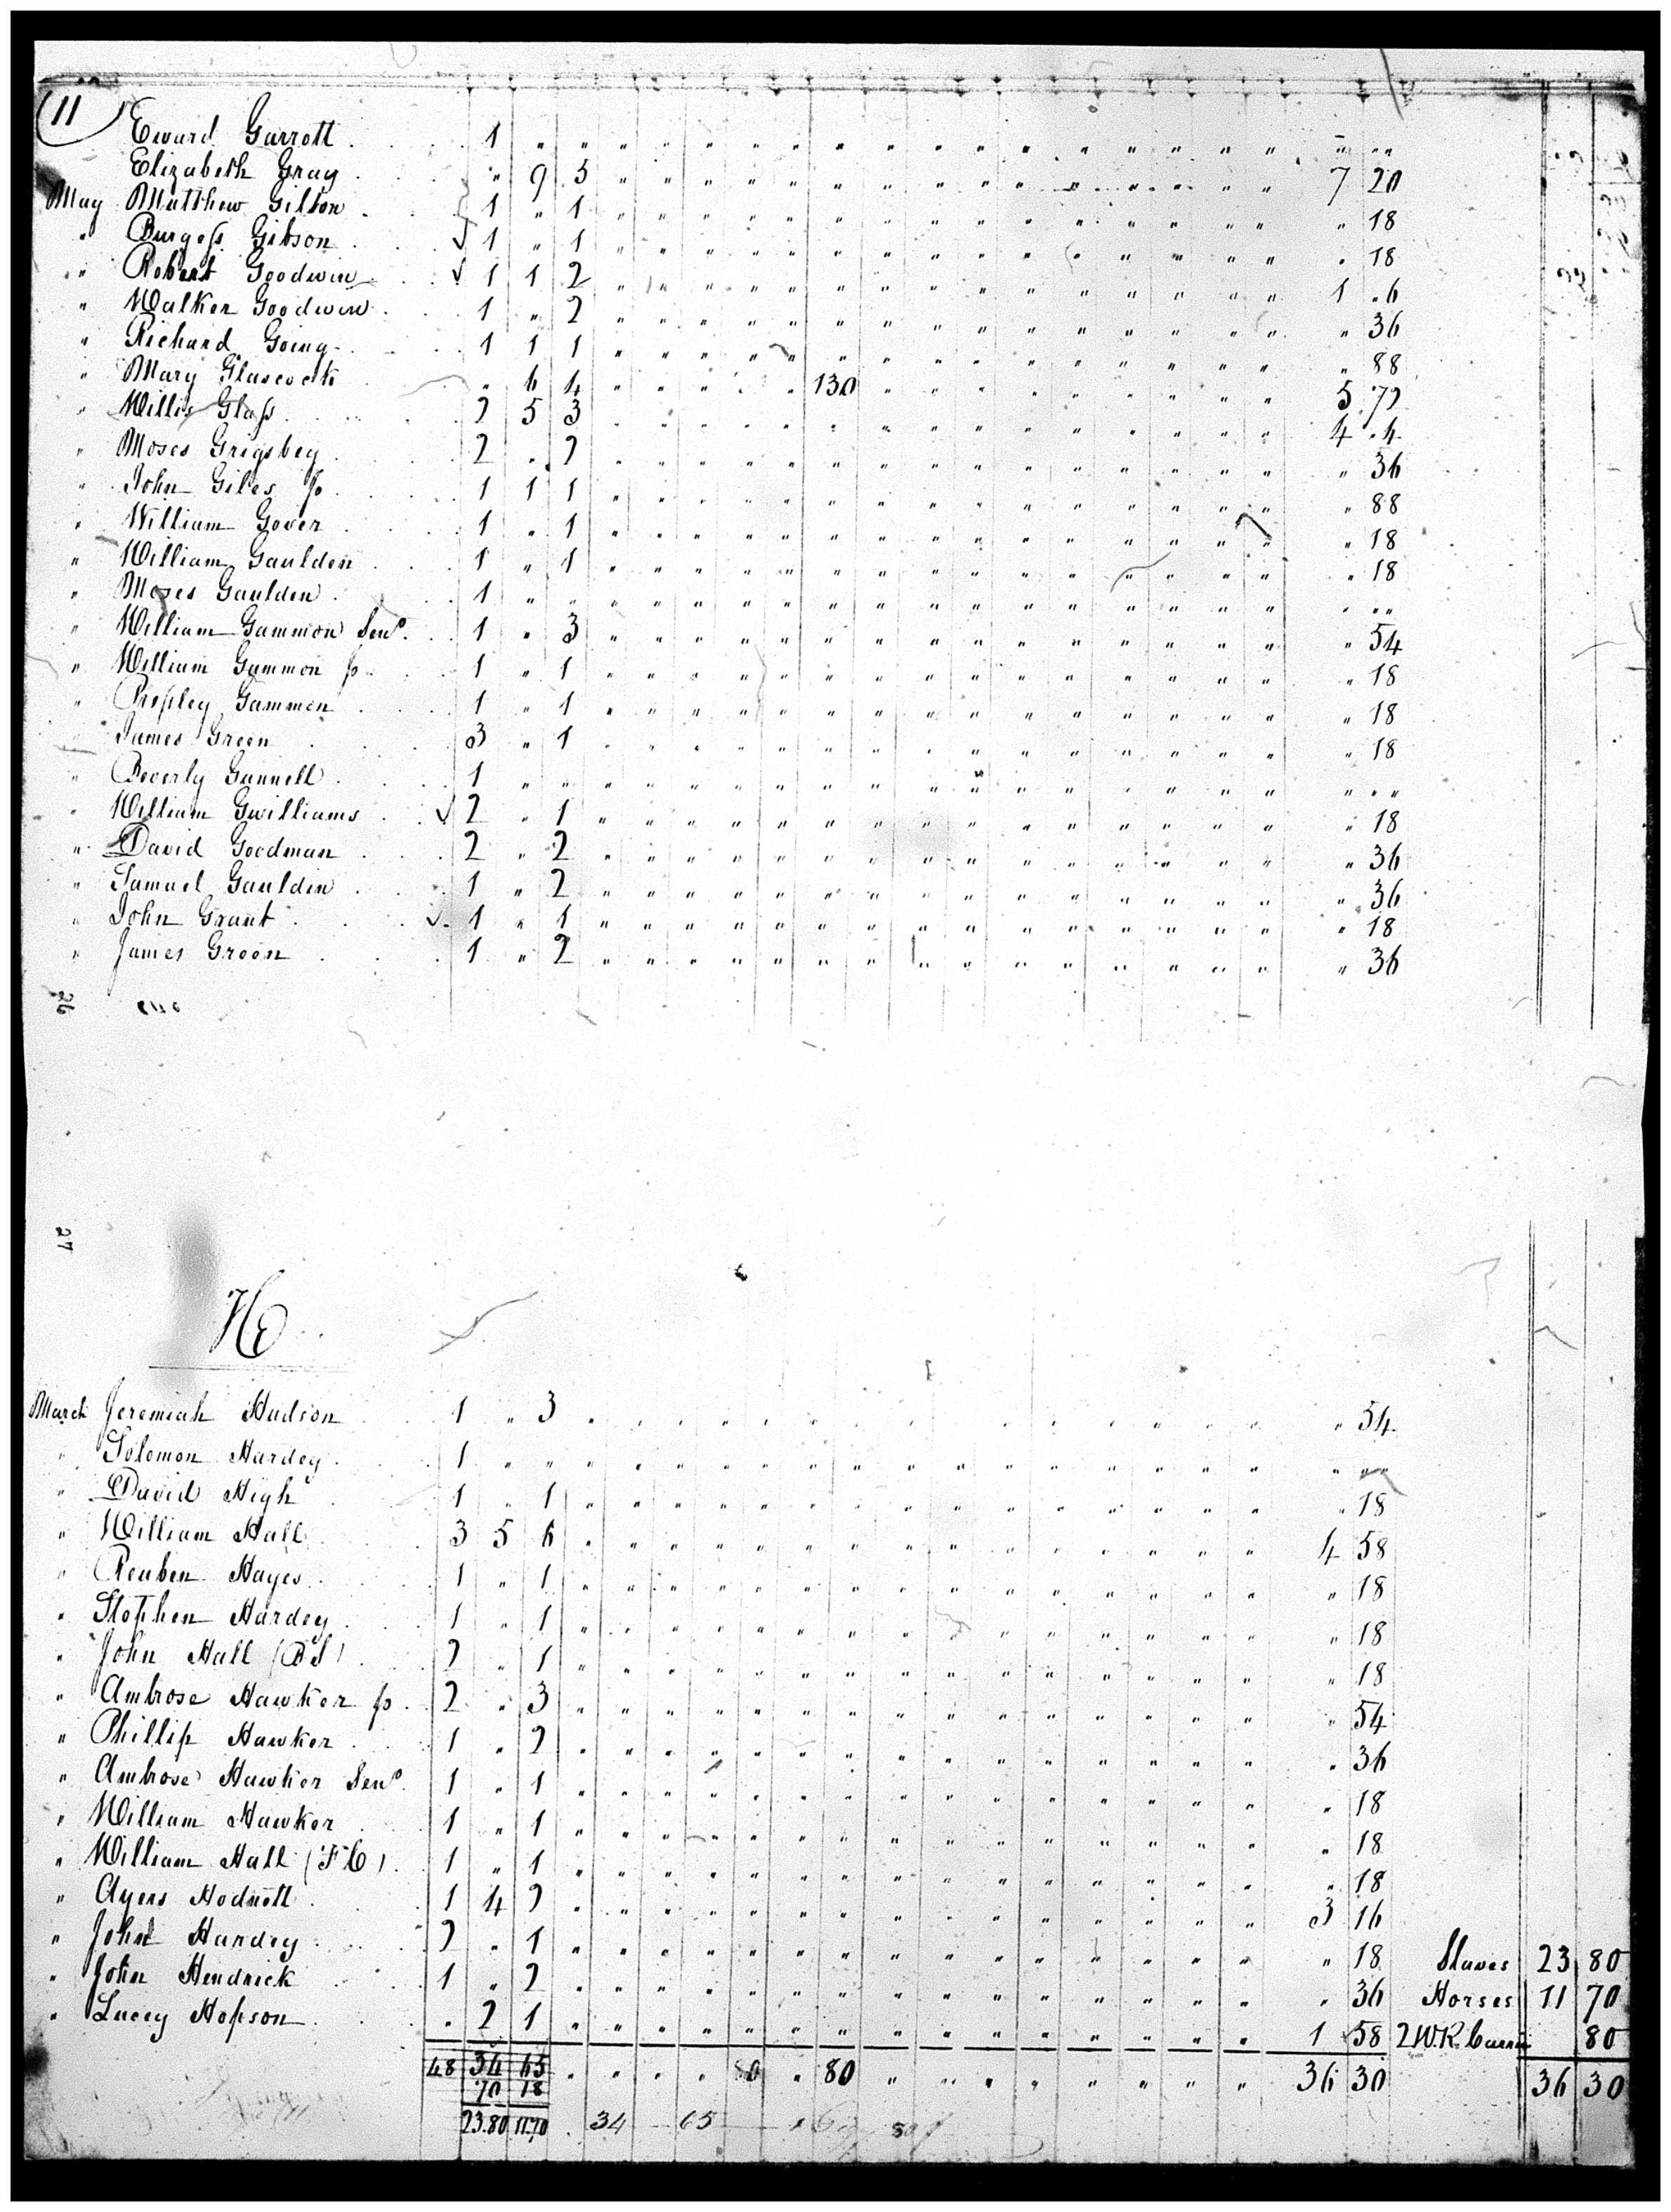 11
Eward Garrott 1 " " " " " " " " " " " " " " " " " " " "
Elizabeth Gray " 9 5 " " " " " " " " " " " " " " " 7 20
May Matthew Gilbon 1 " 1 " " " " " " " " " " " " " " " " 18
" Burgess Gibson 1 " 1 " " " " " " " " " " " " " " " " 18
" Robert Goodwin 1 1 2 " " " " " " " " " " " " " " " 1 "6
" Walker Goodwin 1 " 2 " " " " " " " " " " " " " " " " 36
" Richard Going 1 1 1 " " " " " " " " " " " " " " " " 88
" Mary Glascock " 6 4 " " " " " 130 " " " " " " " " " 5 72
" Willis Glass 2 5 3 " " " " " " " " " " " " " " " 4 "4
" Moses Grigsbey 2 " 2 " " " " " " " " " " " " " " " " 36
" John Giles Jr 1 1 1 " " " " " " " " " " " " " " " " 88
" William Gover 1 " 1 " " " " " " " " " " " " " " " " 18
" William Gaulden 1 " 1 " " " " " " " " " " " " " " " " 18
" Moses Gaulden 1 " " " " " " " " " " " " " " " " " " " "
" William Gammon Senr 1 " 3 " " " " " " " " " " " " " " " " 54
" William Gammon Jr 1 " 1 " " " " " " " " " " " " " " " " 18
" Propley Gammon 1 " 1 " " " " " " " " " " " " " " " " 18
" James Green 3 " 1 " " " " " " " " " " " " " " " " 18
" Beverly Gunnell 1 " " " " " " " " " " " " " " " " " " " "
" William Gwilliams 2 " 1 " " " " " " " " " " " " " " " " 18
" David Goodman 2 " 2 " " " " " " " " " " " " " " " " 36
" Samuel Gauldin 1 " 2 " " " " " " " " " " " " " " " " 36
" John Grant 1 " 1 " " " " " " " " " " " " " " " " 18
" James Green 1 " 2 " " " " " " " " " " " " " " " " 36
26
27
H
March Jeremiah Hudson 1 " 3 " " " " " " " " " " " " " " " " 54
" Solomon Hardey 1 " " " " " " " " " " " " " " " " " " " "
" David High 1 " 1 " " " " " " " " " " " " " " " " 18
" William Hall 3 5 6 " " " " " " " " " " " " " " " 4 58
" Reuben Hayes 1 " 1 " " " " " " " " " " " " " " " " 18
" Stephen Hardey 1 " 1 " " " " " " " " " " " " " " " " 18
" John Hall (BS) 2 " 1 " " " " " " " " " " " " " " " " 18
" Ambrose Hawker Jr 2 " 3 " " " " " " " " " " " " " " " " 54
" Phillip Hawker 1 " 2 " " " " " " " " " " " " " " " " 36
" Ambrose Hawker Senr 1 " 1 " " " " " " " " " " " " " " " " 18
" William Hawker 1 " 1 " " " " " " " " " " " " " " " " 18
" William Hall (FC) 1 " 1 " " " " " " " " " " " " " " " " 18
" Ayers Hodnett 1 4 2 " " " " " " " " " " " " " " " 3 16
" John Hardey 2 " 1 " " " " " " " " " " " " " " " " 18 Slaves 23 80
" John Hendrick 1 " 2 " " " " " " " " " " " " " " " " 36 Horses 11 70
" Lucey Hopson " 2 1 " " " " " " " " " " " " " " " 1 58 2 W.R. Carri 80
48 34 65 " " " " 80 " 80 " " " " " " " " " 36 30 36 30
70 18
23.80 11.70 34 65